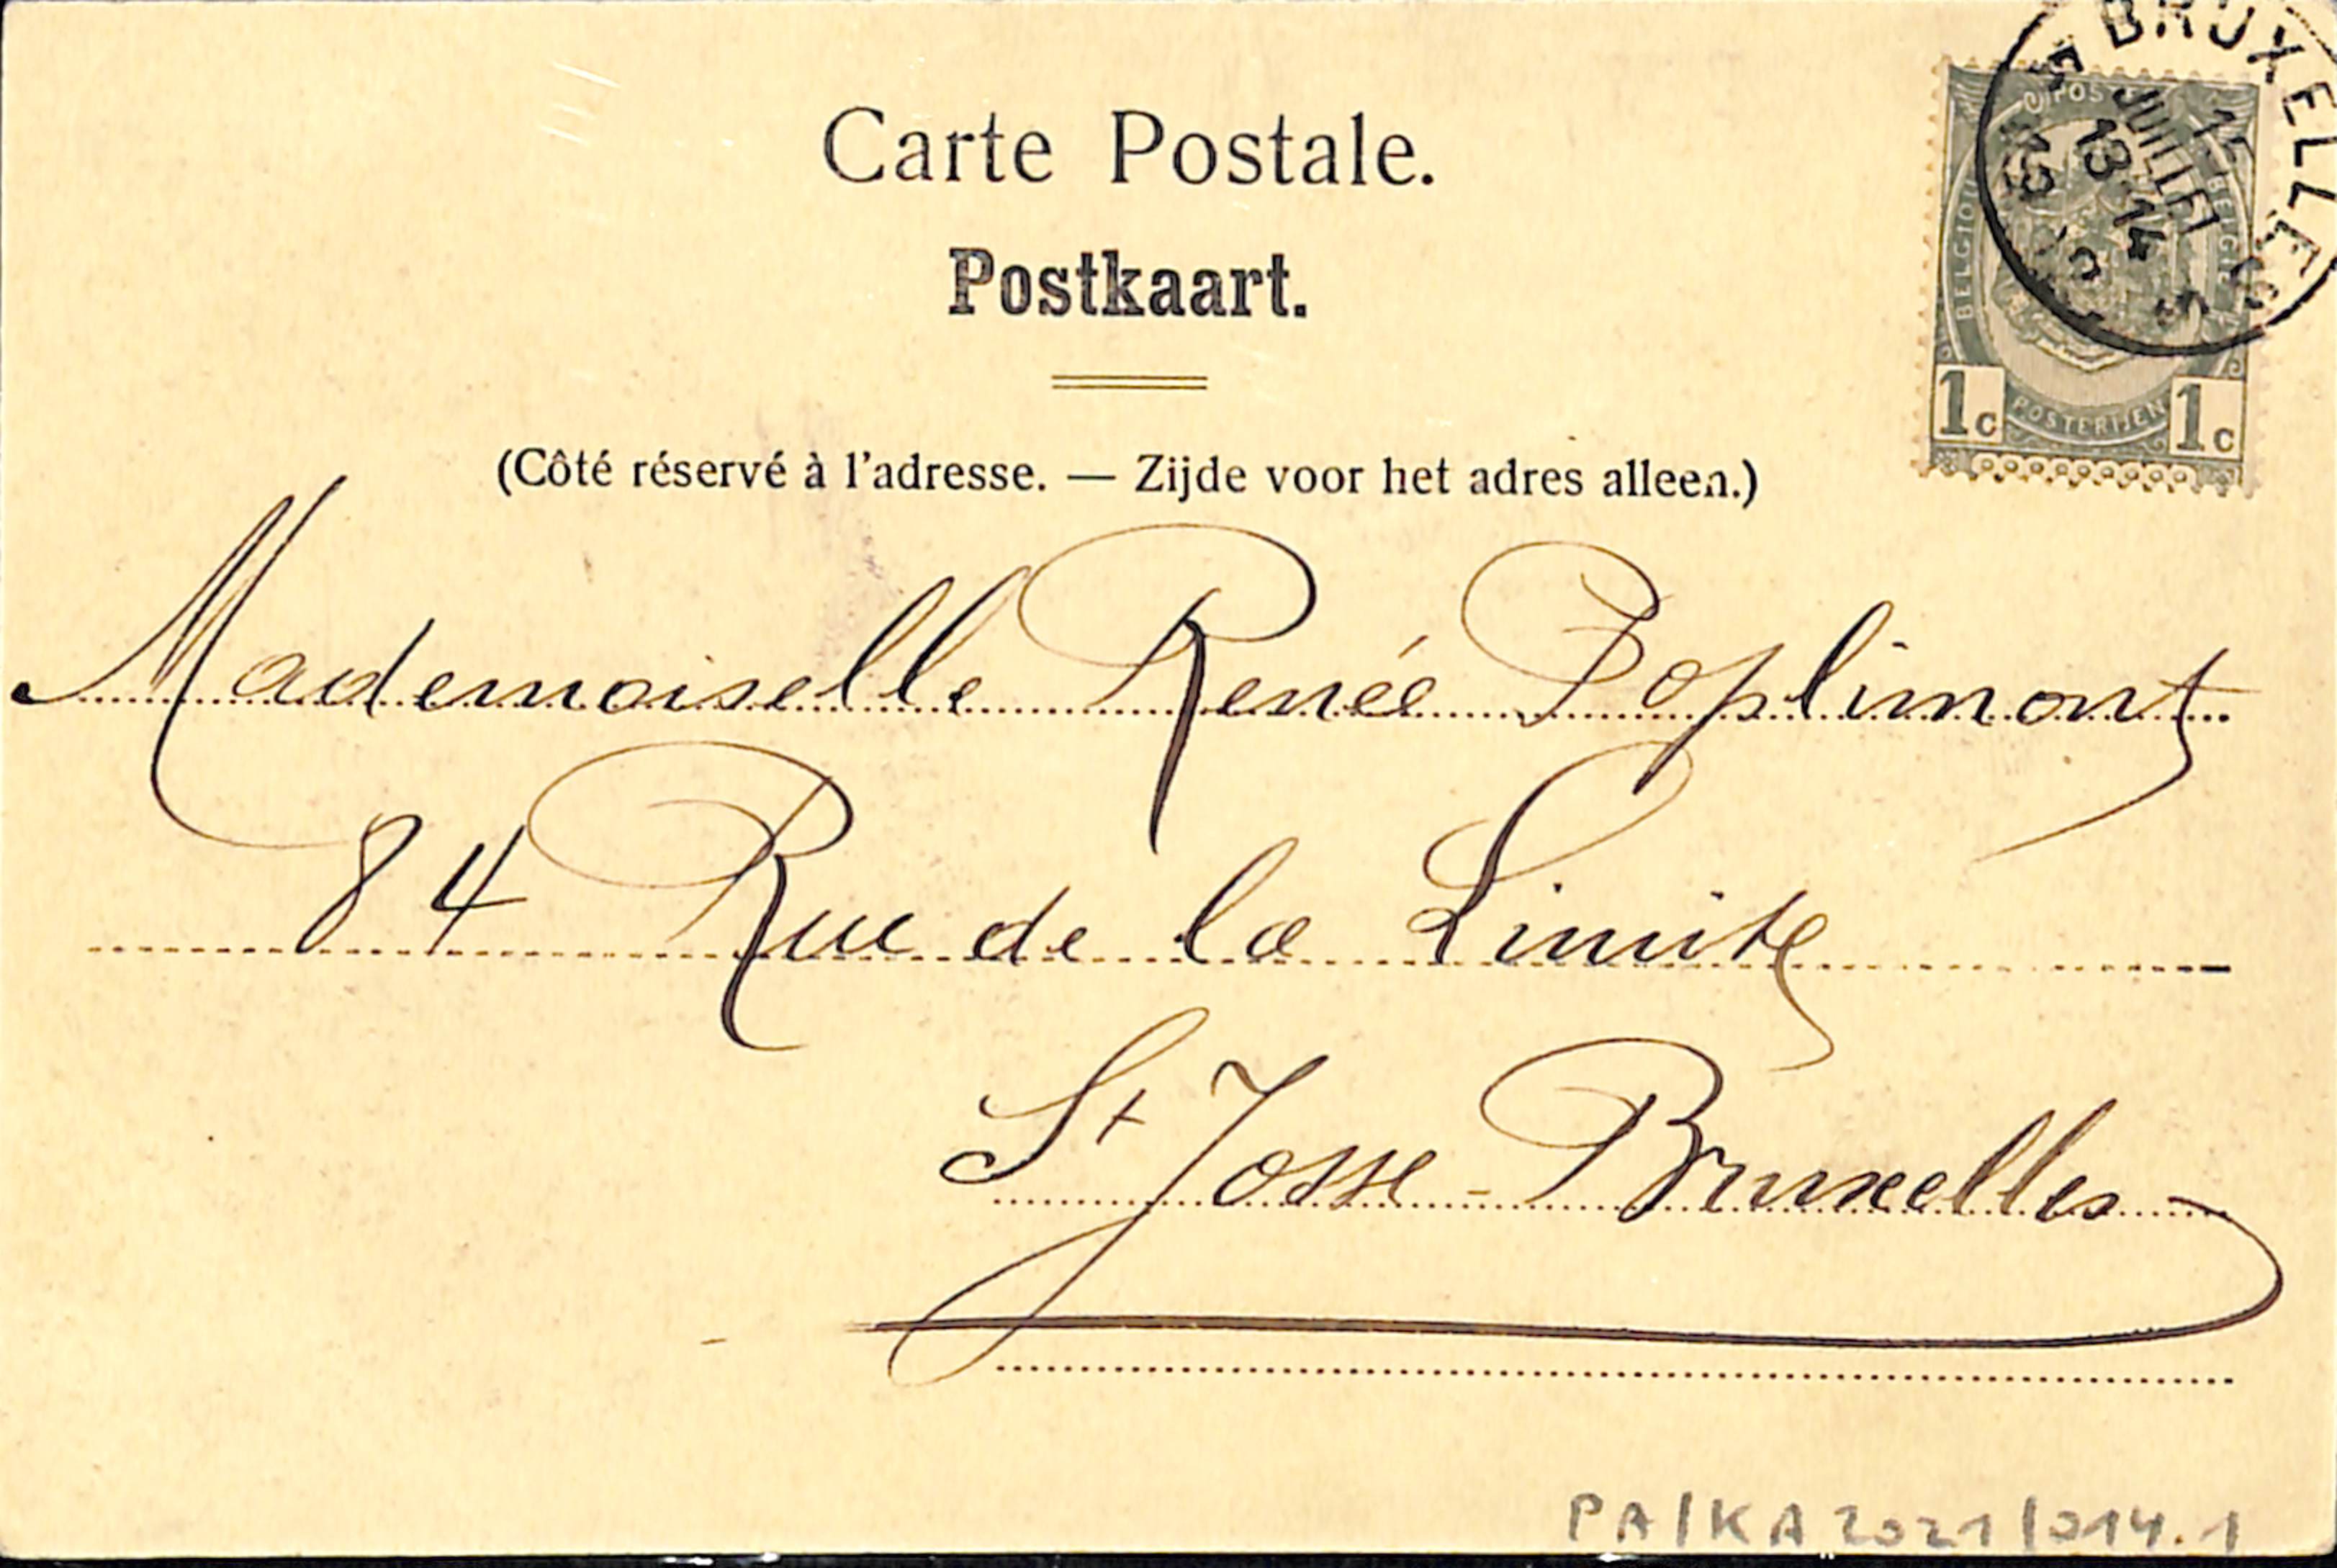 Carte Postale.
Postkaart.
(Côté réservé à l'adresse. — Zijde voor het adres alleen.)
BRUXELLES
JUILLET
13-14
BELGIQUE
BELGIË
1c POSTERIJEN 1c
Mademoiselle Renée Poplimont
84 Rue de la Limite
St Josse - Bruxelles
PA/KA 2021/014.1